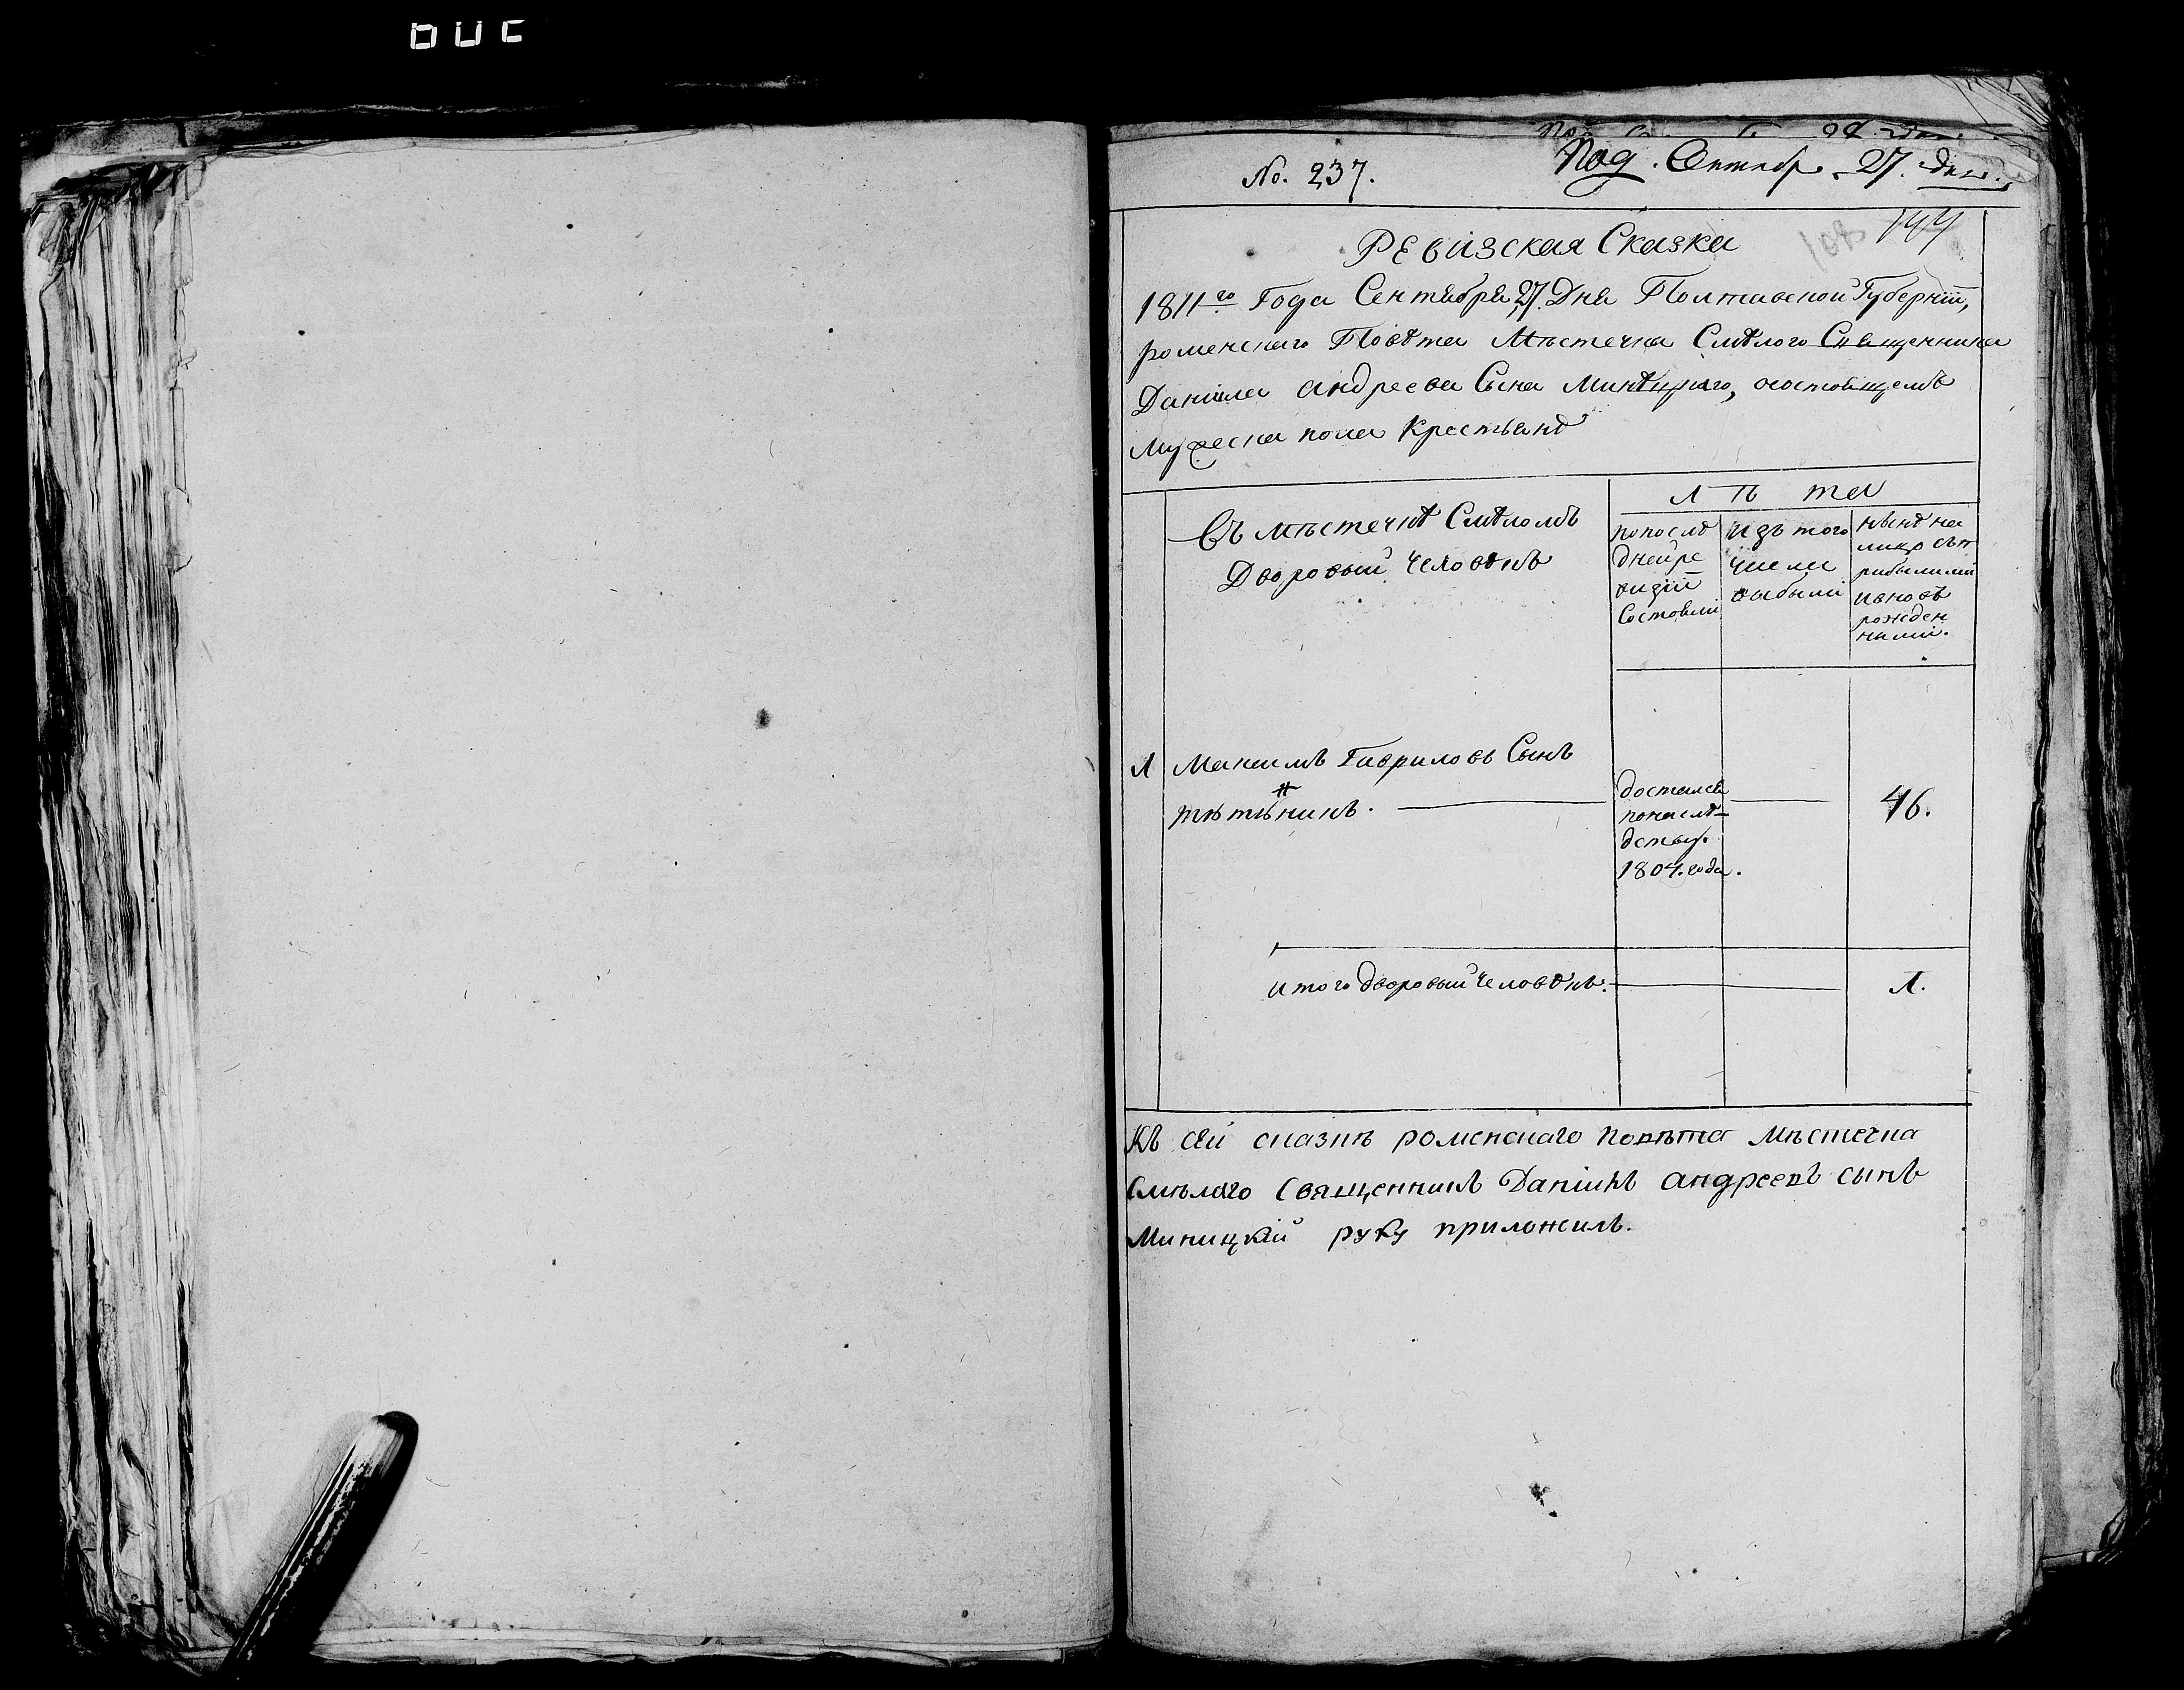 No. 237.
Под. Сентябр. 27. дня.
194
Ревизская Сказка
1811го Года Сентября 27 Дня Полтавской Губернїи,
роменского Повѣта Мѣстечка Смѣлого Священника
Данїила андреева Сына Минѣцкаго, о состоящемъ
мужеска пола Крестьянѣ
лѣта
Въ мѣстечкѣ Смѣломъ
Дворовый человѣкъ
попослѣ
дней ре
визїи
Состояли
изъ того
числа
выбыли
нынѣ на
лицо съ п
рибылими
ивновь
рожден
ними.
1 Максимъ Гавриловъ Сынъ
тѣтѣникъ.
достался
понаслѣ-
дству.
1804. года.
46.
итого дворовый человѣкъ. 1.
Къ сей сказкѣ роменскаго повѣта мѣстечка
Смѣлаго Священникъ Данїилъ андреевъ сынъ
Миницкїй руку приложилъ.